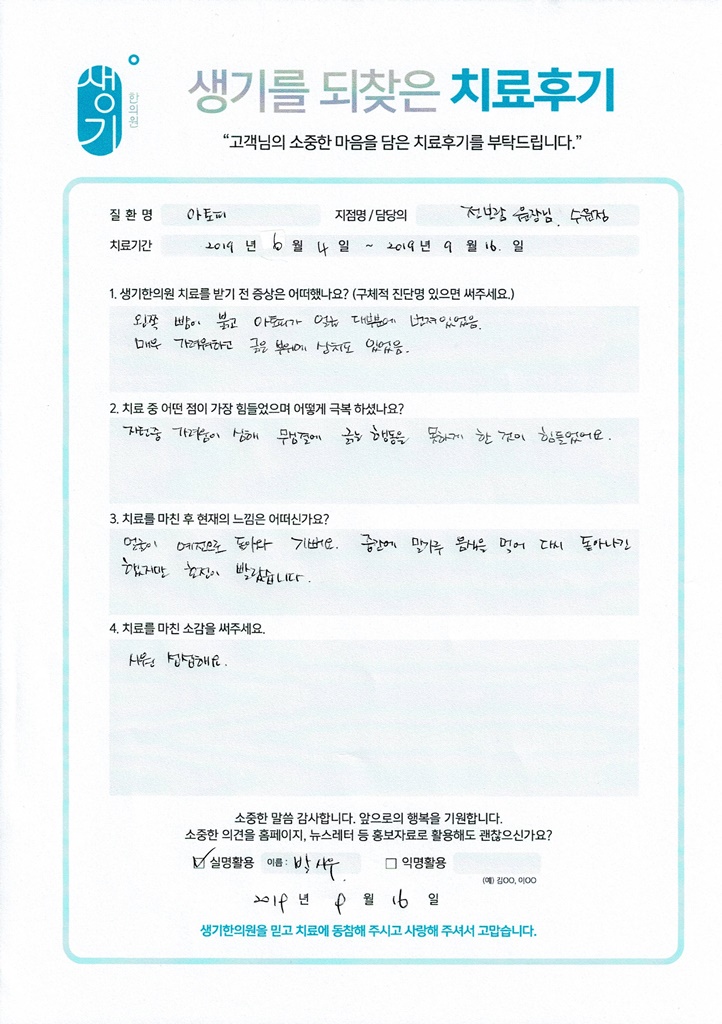 생기
한의원
생기를 되찾은 치료후기
“고객님의 소중한 마음을 담은 치료후기를 부탁드립니다.”
질 환 명 아토피 지점명 / 담당의 전보람 원장님, 수원점
치료기간 2019 년 6 월 4 일 ~ 2019 년 9 월 16. 일
1. 생기한의원 치료를 받기 전 증상은 어떠했나요? (구체적 진단명 있으면 써주세요.)
왼쪽 뺨이 붉고 아토피가 얼굴 대부분에 번져있었음.
매우 가려워하고 긁은 부위에 상처도 있었음.
2. 치료 중 어떤 점이 가장 힘들었으며 어떻게 극복 하셨나요?
가려움이 심해 무심결에 긁는 행동을 못하게 한 것이 힘들었어요.
3. 치료를 마친 후 현재의 느낌은 어떠신가요?
얼굴이 예전으로 돌아와 기뻐요. 중간에 밀가루 음식을 먹어 다시 돋아나긴
했지만 호전이 빨랐습니다.
4. 치료를 마친 소감을 써주세요.
시원 섭섭해요.
소중한 말씀 감사합니다. 앞으로의 행복을 기원합니다.
소중한 의견을 홈페이지, 뉴스레터 등 홍보자료로 활용해도 괜찮으신가요?
실명활용 이름 : 박 익명활용
(예) 김OO, 이OO
2019 년 9 월 16 일
생기한의원을 믿고 치료에 동참해 주시고 사랑해 주셔서 고맙습니다.